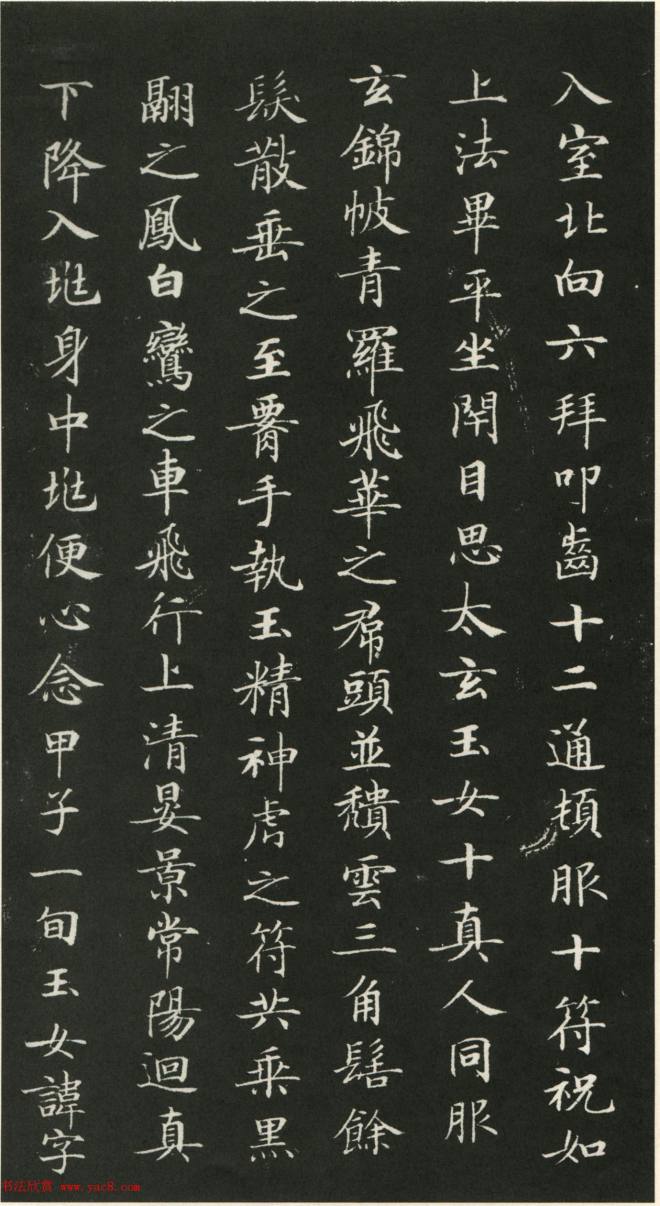 入室北向六拜叩齒十二通頓服十符祝如
上法畢平坐閇目思太玄玉女十真人同服
玄錦帔青羅飛華之帬頭並穨雲三角髻餘
髮散垂之至腰手執玉精神虎之符共乘黑
翮之鳳白鸞之車飛行上清晏景常陽迴真
下降入垗身中垗便心念甲子一旬玉女諱字
书法欣赏 www.yac8.com